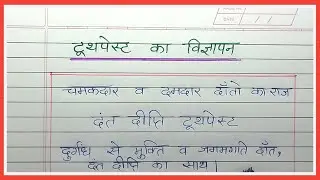 टूथपेस्ट का विज्ञापन
चमकदार व दमदार दाँतो का राज
दंत दीप्ति टूथपेस्ट
दुर्गंध से मुक्ति व जगमगाते दाँत,
दंत दीप्ति का साथ।